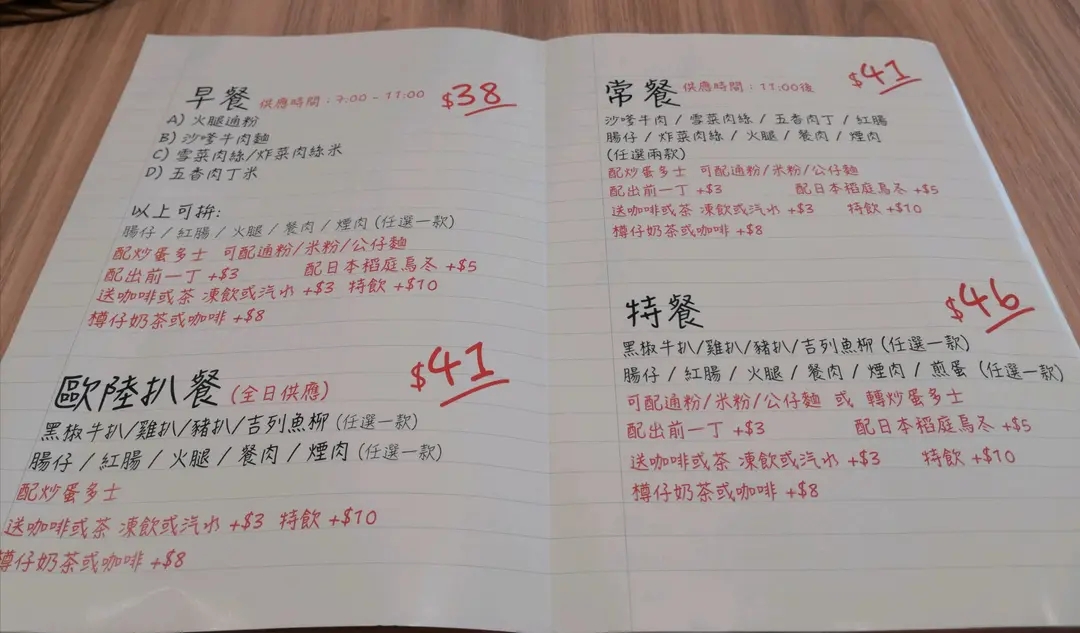 早餐 供應時間：7:00 - 11:00 $38
A) 火腿通粉
B) 沙嗲牛肉麵
C) 雪菜肉絲/炸菜肉絲米
D) 五香肉丁米
以上可拚:
腸仔 / 紅腸 / 火腿 / 餐肉 / 煙肉 (任選一款)
配炒蛋多士 可配通粉/米粉/公仔麵
配出前一丁 +$3 配日本稻庭烏冬 +$5
送咖啡或茶 凍飲或汽水 +$3 特飲 +$10
樽仔奶茶或咖啡 +$8
歐陸扒餐 (全日供應) $41
黑椒牛扒/雞扒/豬扒/吉列魚柳 (任選一款)
腸仔 / 紅腸 / 火腿 / 餐肉 / 煙肉 (任選一款)
配炒蛋多士
送咖啡或茶 凍飲或汽水 +$3 特飲 +$10
樽仔奶茶或咖啡 +$8
常餐 供應時間：11:00後 $41
沙嗲牛肉 / 雪菜肉絲 / 五香肉丁 / 紅腸
腸仔 / 炸菜肉絲 / 火腿 / 餐肉 / 煙肉
(任選兩款)
配炒蛋多士 可配通粉/米粉/公仔麵
配出前一丁 +$3 配日本稻庭烏冬 +$5
送咖啡或茶 凍飲或汽水 +$3 特飲 +$10
樽仔奶茶或咖啡 +$8
特餐 $46
黑椒牛扒/雞扒/豬扒/吉列魚柳 (任選一款)
腸仔 / 紅腸 / 火腿 / 餐肉 / 煙肉 / 煎蛋 (任選一款)
可配通粉/米粉/公仔麵 或 轉炒蛋多士
配出前一丁 +$3 配日本稻庭烏冬 +$5
送咖啡或茶 凍飲或汽水 +$3 特飲 +$10
樽仔奶茶或咖啡 +$8